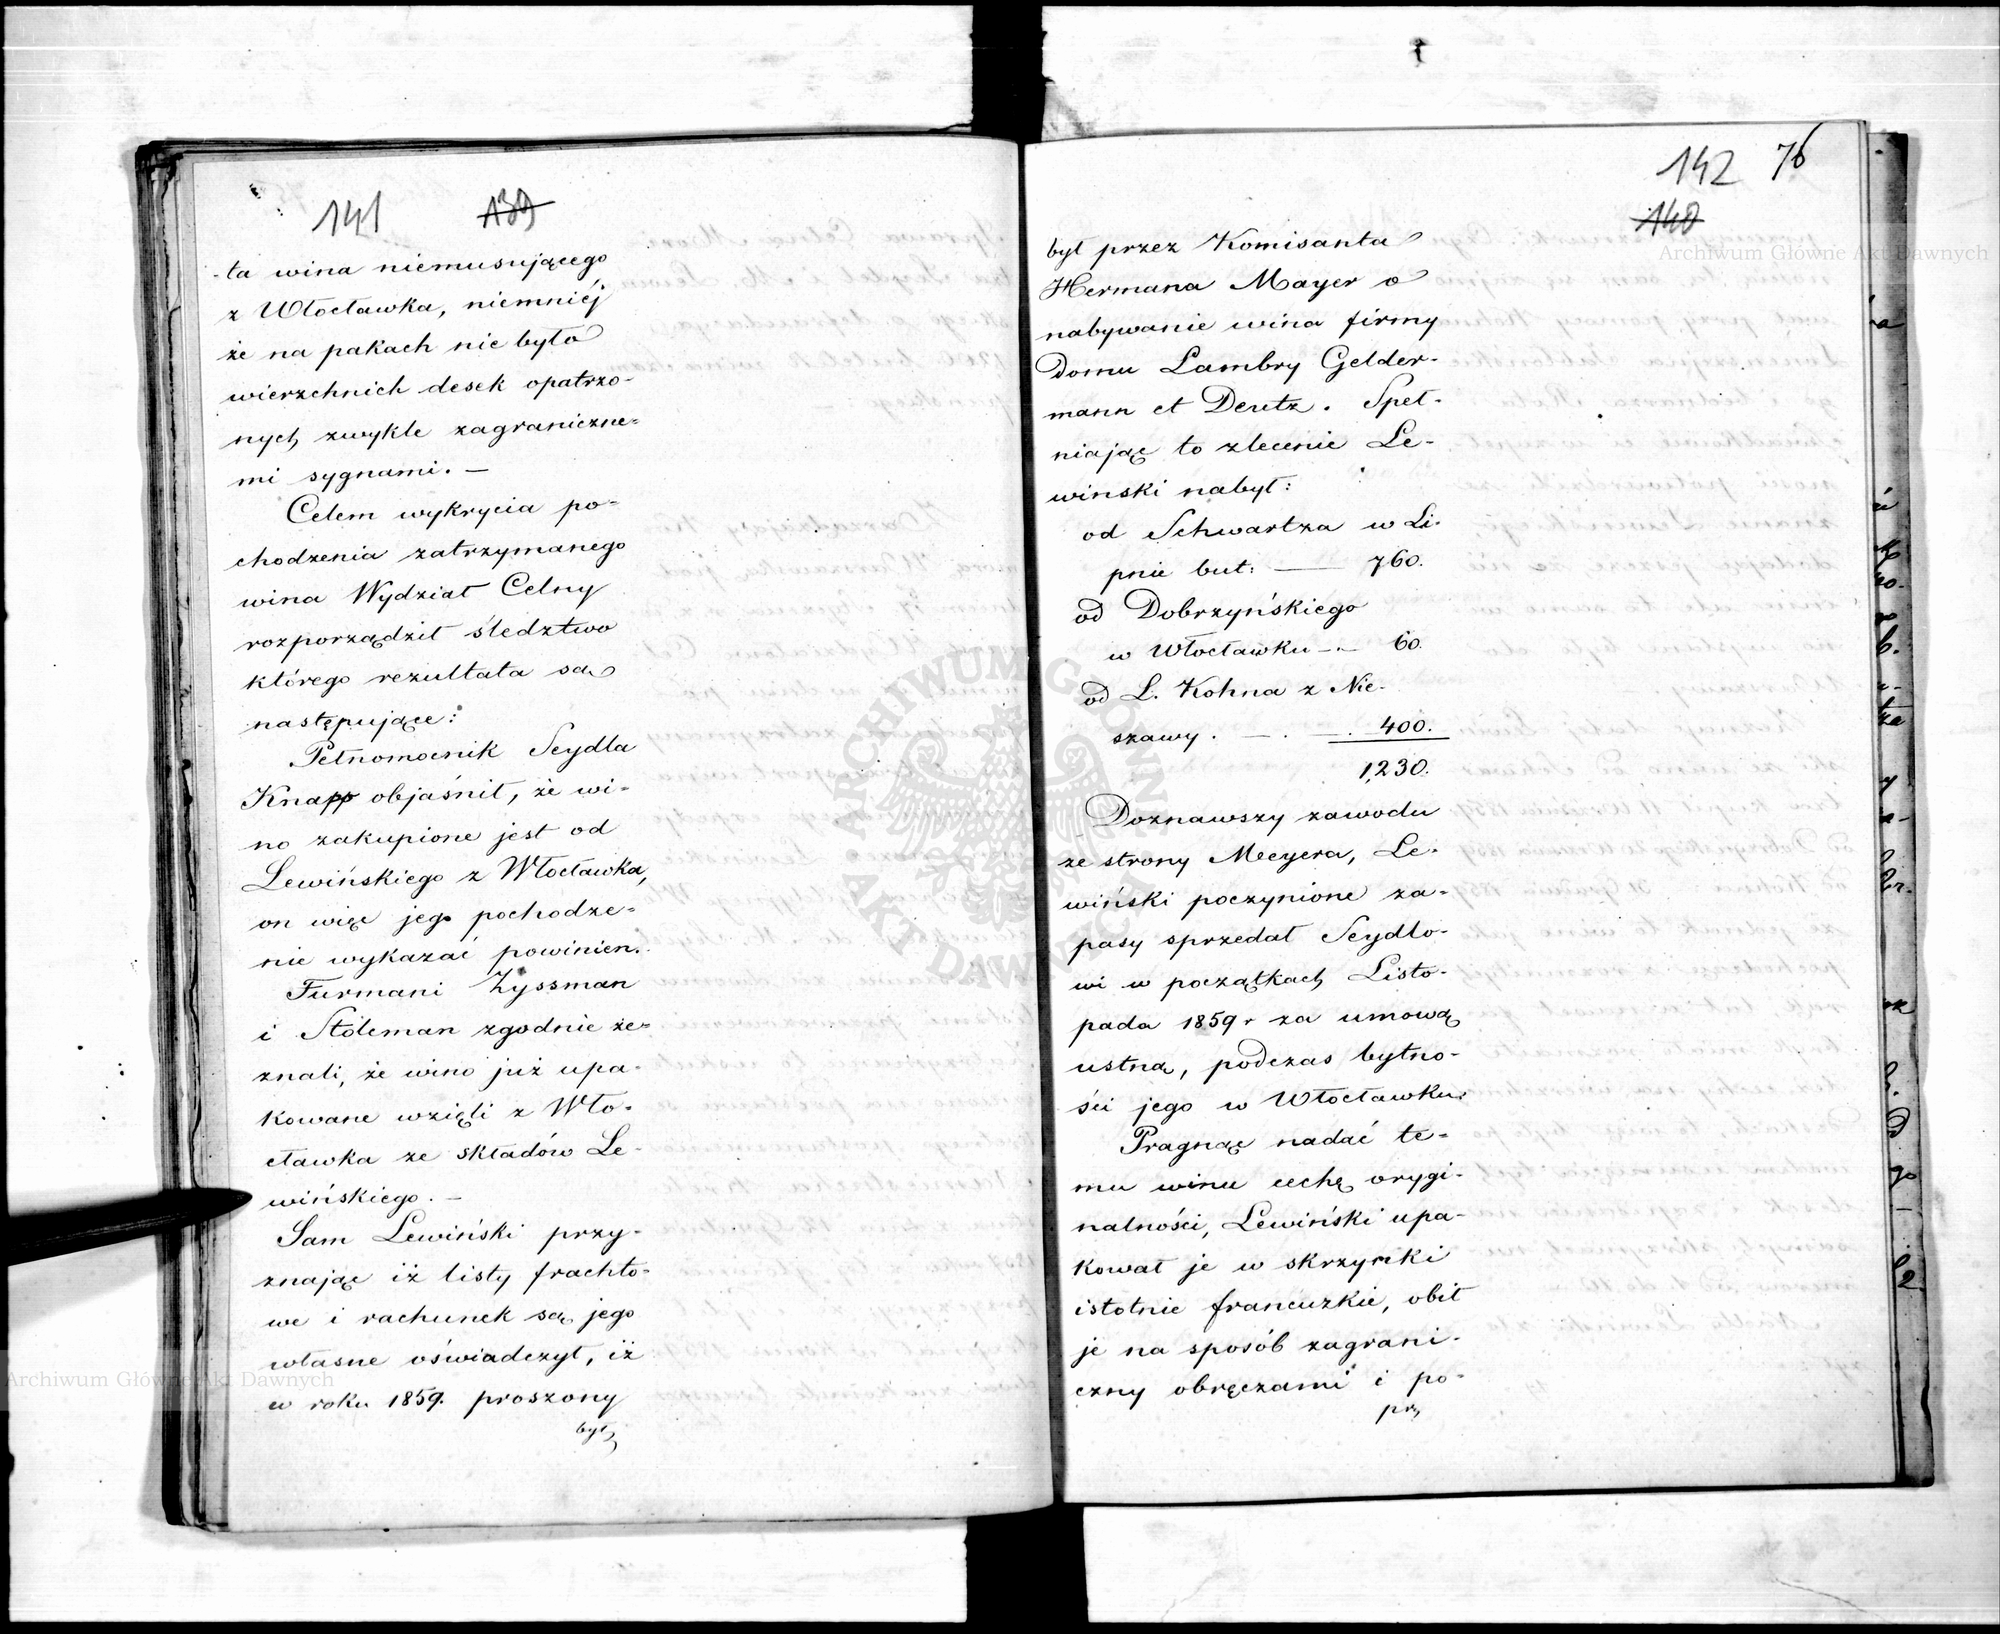 141 139
-ta wina niemusującego
z Włocławka, niemniéj
że na pakach nie było
wierzchnich desek opatrzo-
nych zwykle zagraniczne-
mi sygnami. —
Celem wykrycia po-
chodzenia zatrzymanego
wina Wydział Celny
rozporządził śledztwo
którego rezultata są
następujące:
Pełnomocnik Seydla
Knapp objaśnił, że wi-
no zakupione jest od
Lewińskiego z Włocławka,
on więc jego pochodze-
nie wykazać powinien.
Furmani Zyssman
i Stoleman zgodnie ze-
znali, że wino już upa-
kowane wzięli z Wło-
cławka ze składów Le-
wińskiego. —
Sam Lewiński przy-
znając iż listy frachto-
we i rachunek są jego
własne oświadczył, iż
w roku 1859. proszony
był
142 76
140
był przez Komisanta
Hermana Mayer o
nabywanie wina firmy
Domu Lambry Gelder-
mann et Deutz. Speł-
niając to zlecenie Le-
winski nabył:
od Schwartza w Li-
pnie but: — 760.
od Dobrzyńskiego
w Włocławku — 60.
od L. Kohna z Nie-
szawy . — . — . 400.
1,230.
Doznawszy zawodu
ze strony Meeyera, Le-
wiński poczynione za-
pasy sprzedał Seydlo-
wi w początkach Listo-
pada 1859 r za umową
ustną, podczas bytno-
ści jego w Włocławku.
Pragnąc nadać te-
mu winu cechę orygi-
nalności, Lewiński upa-
kował je w skrzynki
istotnie francuzkie, obił
je na sposób zagrani-
czny obręczami i po-
prz
Archiwum Główne Akt Dawnych
Archiwum Główne Akt Dawnych
ARCHIWUM GŁÓWNE AKT DAWNYCH